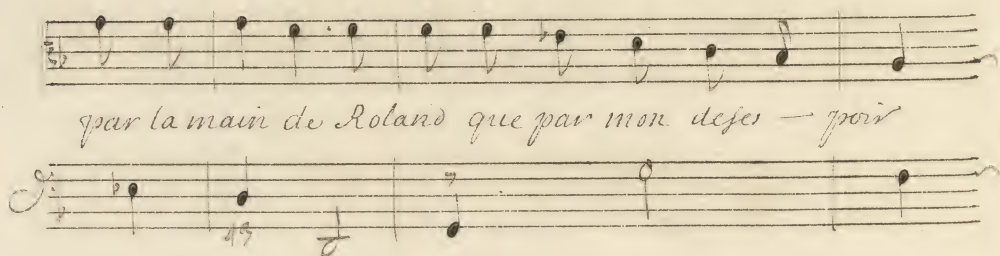 par la main de Roland que par mon deses — poir
43